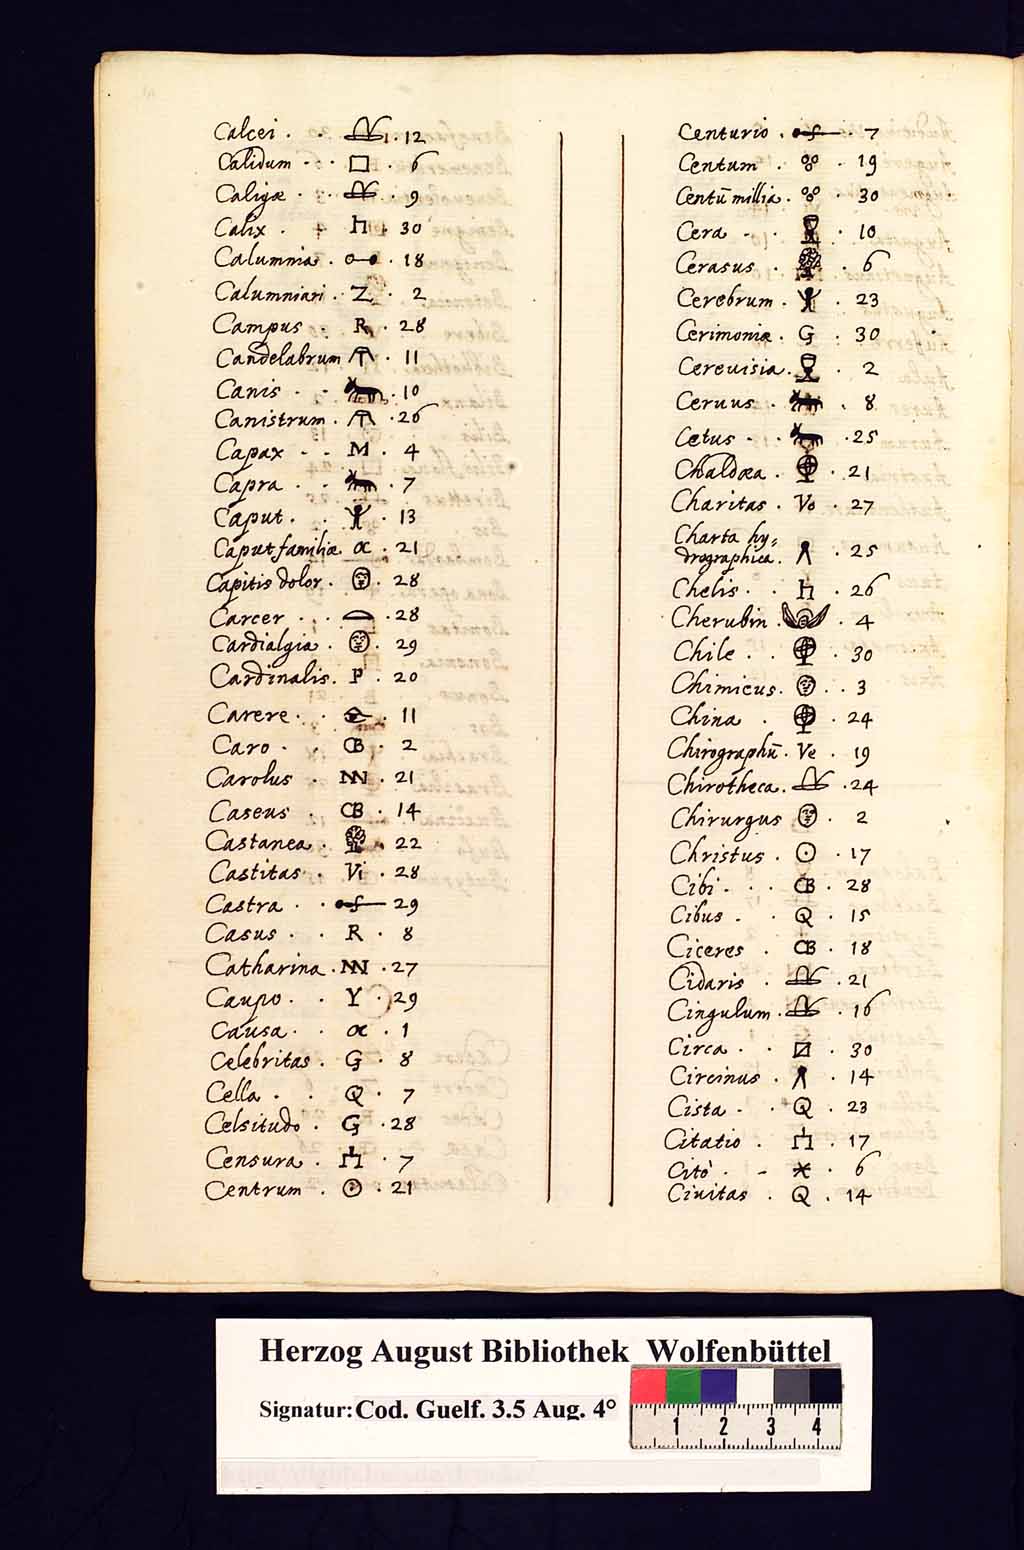 Calcei . . 1 . 12
Calidum . . □ . 6
Caligæ . . 9
Calix . . 30
Calumnia . . 18
Calumniari . Z . 2
Campus . R . 28
Candelabrum . 11
Canis . . 10
Canistrum . . 26
Capax . . M . 4
Capra . . 7
Caput . . 13
Caput familiæ α . 21
Capitis dolor . . 28
Carcer . . . 28
Cardialgia . . 29
Cardinalis . P . 20
Carere . . 11
Caro . . CB . 2
Carolus . NN . 21
Caseus . CB . 14
Castanea . . 22
Castitas . Vi . 28
Castra . . 29
Casus . . R . 8
Catharina . NN . 27
Caupo . . Y . 29
Causa . . α . 1
Celebritas . G . 8
Cella . . Q . 7
Celsitudo . G . 28
Censura . . 7
Centrum . ☉ . 21
Centurio . . 7
Centum . . 19
Centũ millia . . 30
Cera . . 10
Cerasus . . 6
Cerebrum . . 23
Cerimoniæ . G . 30
Cereuisia . . 2
Ceruus . . 8
Cetus . . 25
Chaldæa . . 21
Charitas . Vo . 27
Charta hy⸗
drographica . . 25
Chelis . . . 26
Cherubin . . 4
Chile . . . 30
Chimicus . . . 3
China . . 24
Chirographũ . Ve . 19
Chirotheca . . 24
Chirurgus . 2
Christus . ☉ . 17
Cibi . . . CB . 28
Cibus . . Q . 15
Ciceres . CB . 18
Cidaris . . 21
Cingulum . . 16
Circa . . . 30
Circinus . . 14
Cista . . Q . 23
Citatio . . 17
Citò . - * . 6
Ciuitas . Q . 14
Herzog August Bibliothek Wolfenbüttel
Signatur: Cod. Guelf. 3.5 Aug. 4°
1 2 3 4